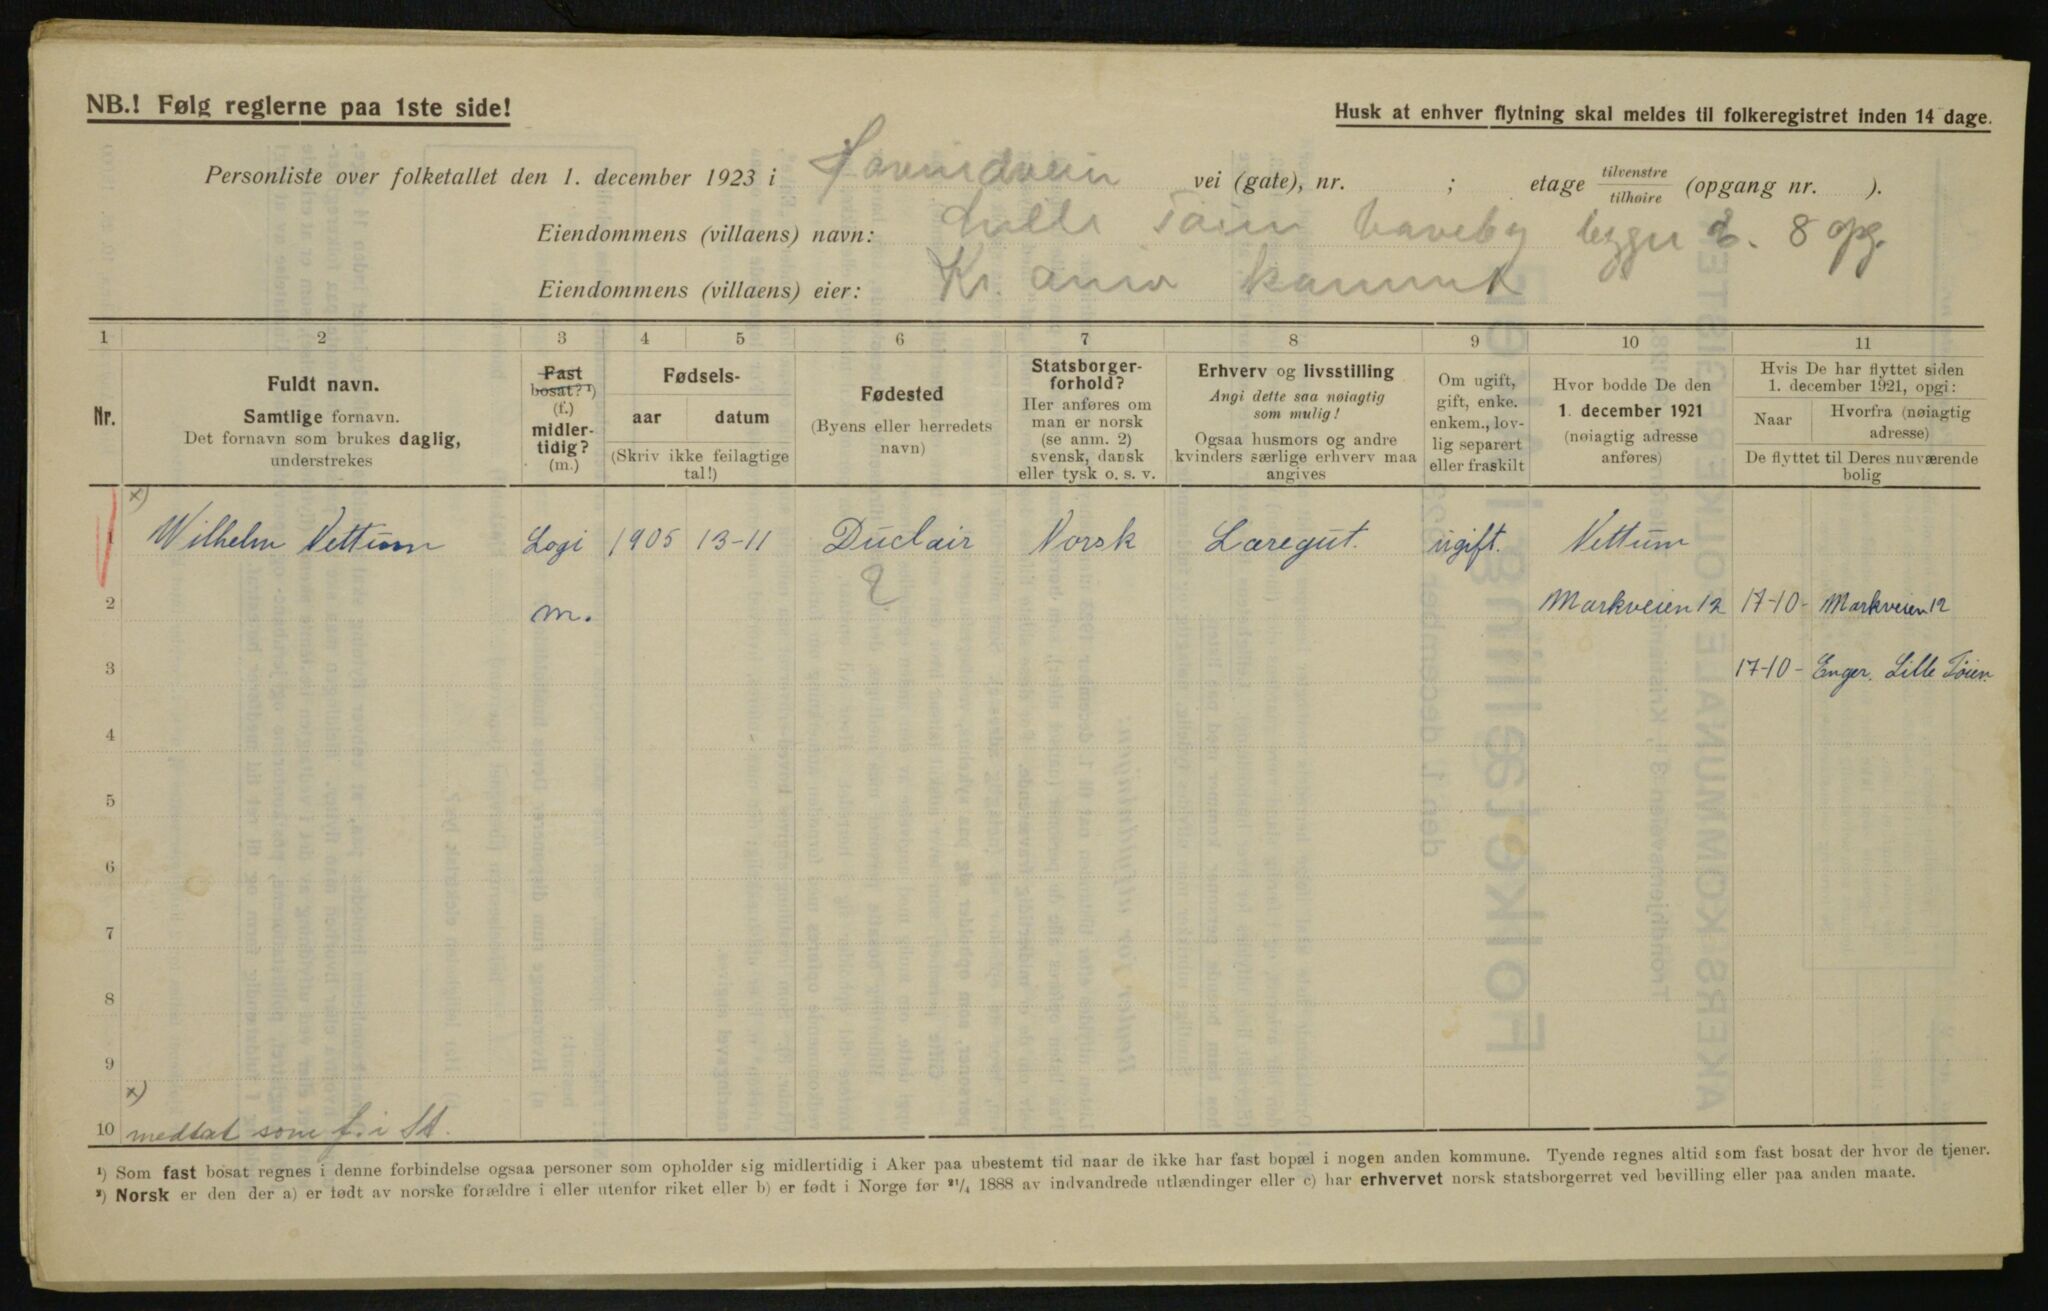 NB.! Følg reglerne paa 1ste side!
Husk at enhver flytning skal meldes til folkeregistret inden 14 dage.
Personliste over folketallet den 1. december 1923 i vei (gate), nr. ; etage tilvenstre tilhøire (opgang nr. ).
Eiendommens (villaens) navn: Lille Tøien haveby bygge 2. 8 opg.
Eiendommens (villaens) eier: Kr.ania kommune
1 2 3 4 5 6 7 8 9 10 11
Nr.
Fuldt navn.
Samtlige fornavn.
Det fornavn som brukes daglig,
understrekes
Fast
bosat? ¹)
(f.)
midler-
tidig?
(m.)
Fødsels-
aar datum
(Skriv ikke feilagtige
tal!)
Fødested
(Byens eller herredets
navn)
Statsborger-
forhold?
Her anføres om
man er norsk
(se anm. 2)
svensk, dansk
eller tysk o. s. v.
Erhverv og livsstilling
Angi dette saa nøiagtig
som mulig!
Ogsaa husmors og andre
kvinders særlige erhverv maa
angives
Om ugift,
gift, enke.
enkem., lov-
lig separert
eller fraskilt
Hvor bodde De den
1. december 1921
(nøiagtig adresse
anføres)
Hvis De har flyttet siden
1. december 1921, opgi:
Naar
Hvorfra (nøiagtig
adresse)
De flyttet til Deres nuværende
bolig
x)
1 Wilhelm Vettum Logi 1905 13-11 Duclair Norsk Læregut. ugift. Vettum
2 m. ? Markveien 12 17-10- Markveien 12
3 17-10- Enger. Lille Tøien.
4
5
6
7
8
9
x)
10 medtat som f. i St.
¹) Som fast bosat regnes i denne forbindelse ogsaa personer som opholder sig midlertidig i Aker paa ubestemt tid naar de ikke har fast bopæl i nogen anden kommune. Tyende regnes altid som fast bosat der hvor de tjener.
²) Norsk er den der a) er født av norske forældre i eller utenfor riket eller b) er født i Norge før ²¹/₄ 1888 av indvandrede utlændinger eller c) har erhvervet norsk statsborgerret ved bevilling eller paa anden maate.